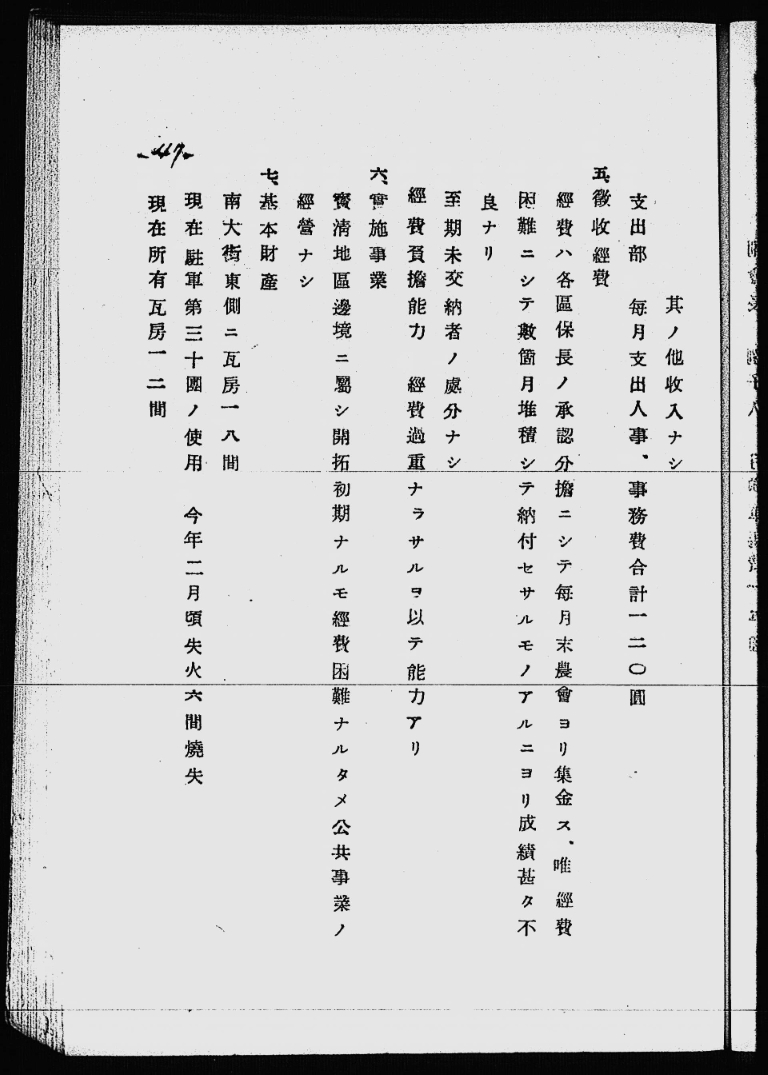 其ノ他收入ナシ
支出部　每月支出人事、事務費合計一二〇圓
五、徵收經費
經費ハ各區保長ノ承認分擔ニシテ每月末農會ヨリ集金ス、唯經費
困難ニシテ數箇月堆積シテ納付セサルモノアルニヨリ成績甚タ不
良ナリ
至期未交納者ノ處分ナシ
經費負擔能力　經費過重ナラサルヲ以テ能力アリ
六、實施事業
寶淸地區邊境ニ屬シ開拓初期ナルモ經費困難ナルタメ公共事業ノ
經營ナシ
七、基本財產
南大街東側ニ瓦房一八間
現在駐軍第三十團ノ使用　今年二月頃失火六間燒失
現在所有瓦房一二間
-47-